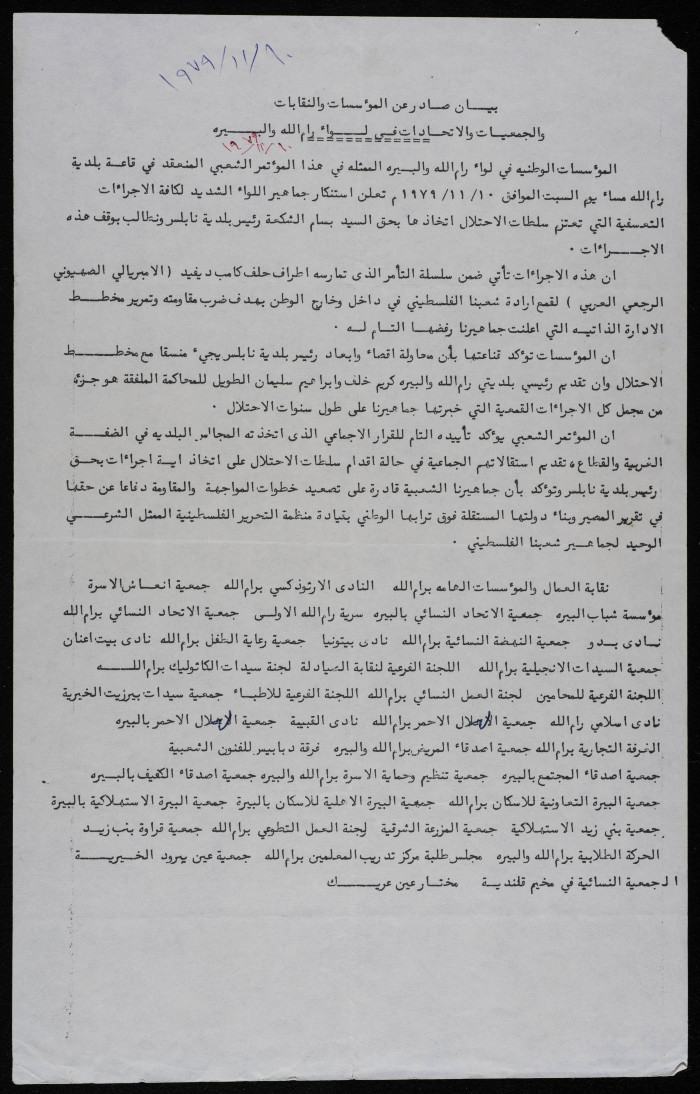 ١٩٧٩/١١/١٠
بيـــان صادر عن المؤسسات والنقابات
والجمعيات والاتحادات فــي لــواء رام الله والبـــــيره
المؤسسات الوطنيه في لواء رام الله والبيره الممثله في هذا المؤتمر الشعبي المنعقد في قاعة بلدية
رام الله مساء يوم السبت الموافق ١٠ / ١١ / ١٩٧٩ م تعلن استنكار جماهير اللواء الشديد لكافة الاجراءات
التعسفية التي تعتزم سلطات الاحتلال اتخاذها بحق السيد بسام الشكعة رئيس بلدية نابلس ونطالب بوقف هذه
الاجـــــراءات ٠
ان هذه الاجراءات تأتي ضمن سلسلة التأمر الذى تمارسه اطراف حلف كامب ديفيد ( الامبريالي الصهيوني
الرجعي العربي ) لقمع ارادة شعبنا الفلسطيني في داخل وخارج الوطن بهدف ضرب مقاومته وتمرير مخطـــط
الادارة الذاتيــه التي اعلنت جماهيرنا رفضهـا التــام لــه ٠
ان المؤسسات تؤكد قناعتها بأن محاولة اقصاء وابعاد رئيس بلدية نابلس يجيء منسقا مع مخطـــــط
الاحتلال وان تقديم رئيسي بلديتي رام الله والبيره كريم خلف وابراهيم سليمان الطويل للمحاكمة الملفقة هو جزء
من مجمل كل الاجراءات القمعية التي خبرتها جماهيرنا على طول سنوات الاحتلال ٠
ان المؤتمر الشعبي يؤكد تأييده التام للقرار الاجماعي الذى اتخذته المجالس البلديه في الضفـــــة
الغربية والقطاع ، تقديم استقالاتهم الجماعية في حالة اقدام سلطات الاحتلال على اتخاذ ايـة اجراءات بحــق
رئيس بلدية نابلس وتؤكد بأن جماهيرنا الشعبية قادرة على تصعيد خطوات المواجهة والمقاومة دفاعا عن حقها
في تقرير المصير وبناء دولتها المستقلة فوق ترابها الوطني بقيادة منظمة التحرير الفلسطينية الممثل الشرعـــي
الوحيد لجماهــير شعبنا الفلسطيني ٠
نقابة العمال والمؤسسات العامه برام الله النادى الارثوذكسي برام الله جمعية انعــاش الاسرة
مؤسسة شباب البيره جمعية الاتحاد النسائي بالبيره سرية رام الله الاولــى جمعية الاتحاد النسائي برام الله
نــادى بــدو جمعية النهضة النسائية برام الله نادى بيتونيا جمعية رعاية الطفل برام الله نادى بيت اعنان
جمعية السيدات الانجيلية برام الله اللجنة الفرعية لنقابة الصيادلة لجنة سيدات الكاثوليك برام اللــــه
اللجنة الفرعية للمحامين لجنة العمل النسائي برام الله اللجنة الفرعية للاطبــاء جمعية سيدات بيرزيت الخيرية
نادى اسلامي رام الله جمعية الهلال الاحمر برام الله نادى القبيبة جمعية الهلال الاحمر بالبيره
الغرفة التجارية برام الله جمعية اصدقاء المريض برام الله والبيره فرقة دبابيس للفنون الشعبية
جمعية اصدقاء المجتمع بالبيره جمعية تنظيم وحماية الاسرة برام الله والبيره جمعية اصدقاء الكفيف بالبـــيره
جمعية البيرة التعاونية للاسكان برام الله جمعية البيرة الاهلية للاسكان بالبيرة جمعية البيرة الاستهلاكية بالبيرة
جمعية بني زيد الاستهلاكية جمعية المزرعة الشرقية لجنة العمل التطوعي برام الله جمعية قراوة بني زيــد
الحركة الطلابية برام الله والبيره مجلس طلبة مركز تدريب المعلمين برام الله جمعية عين يبرود الخـيريـــة
الجمعية النسائية في مخيم قلنديــة مختــار عين عريـــــك